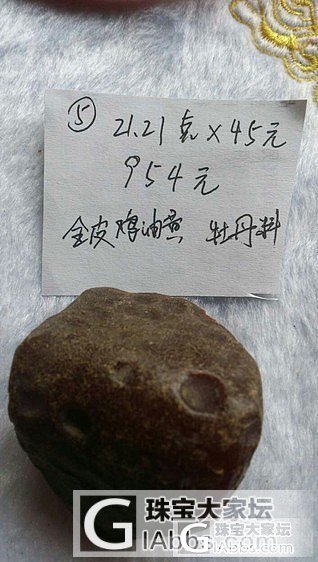 ⑤ 21.21克×45元
954元
全皮鸡油黄 牡丹料
珠宝大家坛
GIAbbs.com
珠宝大家坛
GIAbbs.com